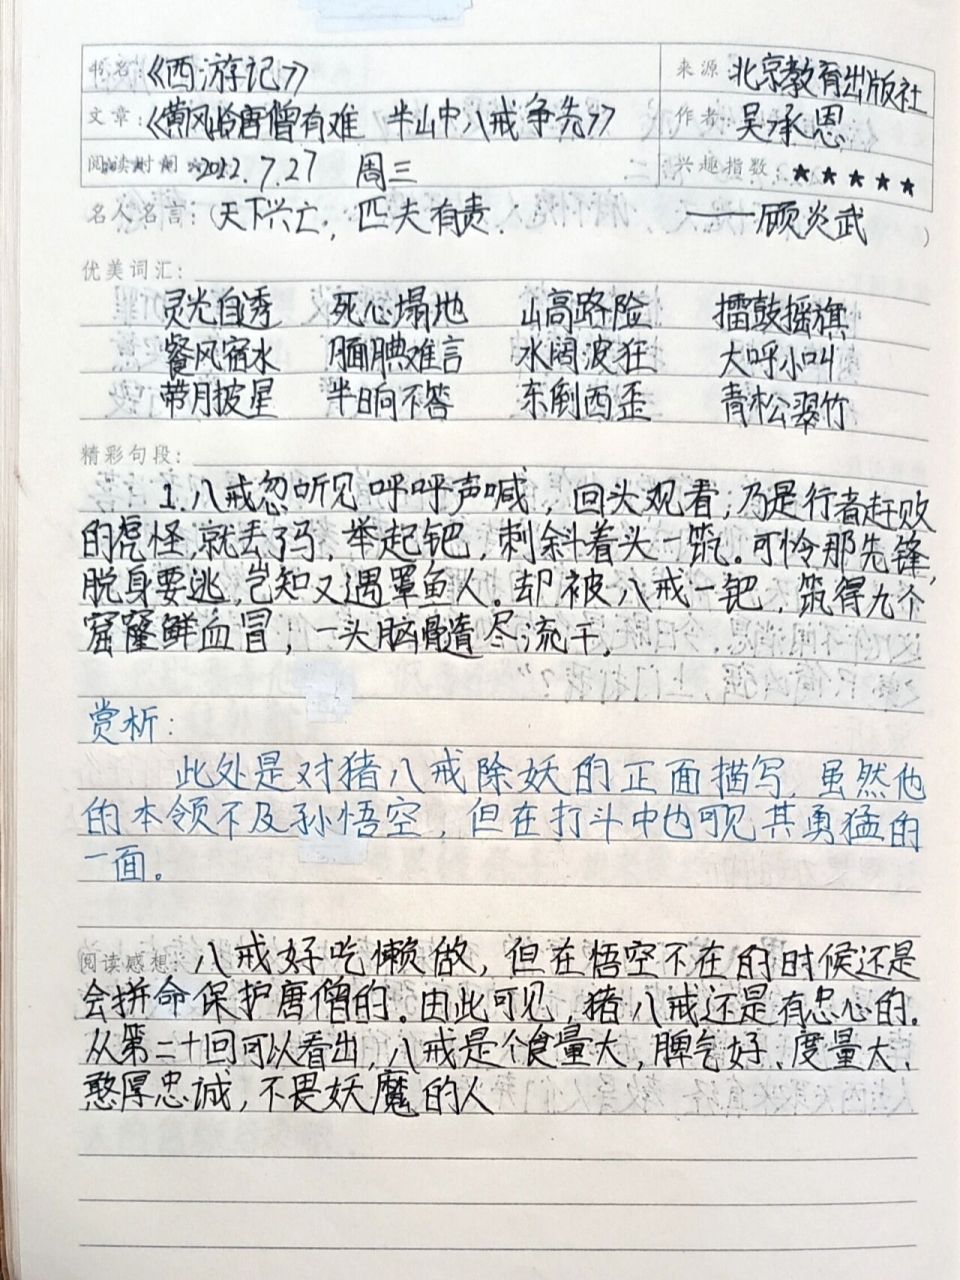 书名:《西游记》 来源:北京教育出版社
文章:《黄风岭唐僧有难 半山中八戒争先》 作者:吴承恩
阅读时间:2022.7.27 周三 兴趣指数:★★★★★
名人名言:(天下兴亡,匹夫有责. ——顾炎武 )
优美词汇:
灵光自秀 死心塌地 山高路险 擂鼓摇旗
餐风宿水 腼腆难言 水阔波狂 大呼小叫
带月披星 半晌不答 东倒西歪 青松翠竹
精彩句段:
1.八戒忽听见呼呼声喊,回头观看;乃是行者赶败
的虎怪,就丢了马,举起钯,刺斜着头一筑。可怜那先锋,
脱身要逃,岂知又遇罩鱼人。却被八戒一钯,筑得九个
窟窿鲜血冒,一头脑髓尽流干。
赏析:
此处是对猪八戒除妖的正面描写,虽然他
的本领不及孙悟空,但在打斗中也可见其勇猛的
一面。
阅读感想:八戒好吃懒做,但在悟空不在的时候还是
会拼命保护唐僧的。因此可见,猪八戒还是有忠心的。
从第二十回可以看出,八戒是个食量大、脾气好、度量大、
憨厚忠诚,不畏妖魔的人